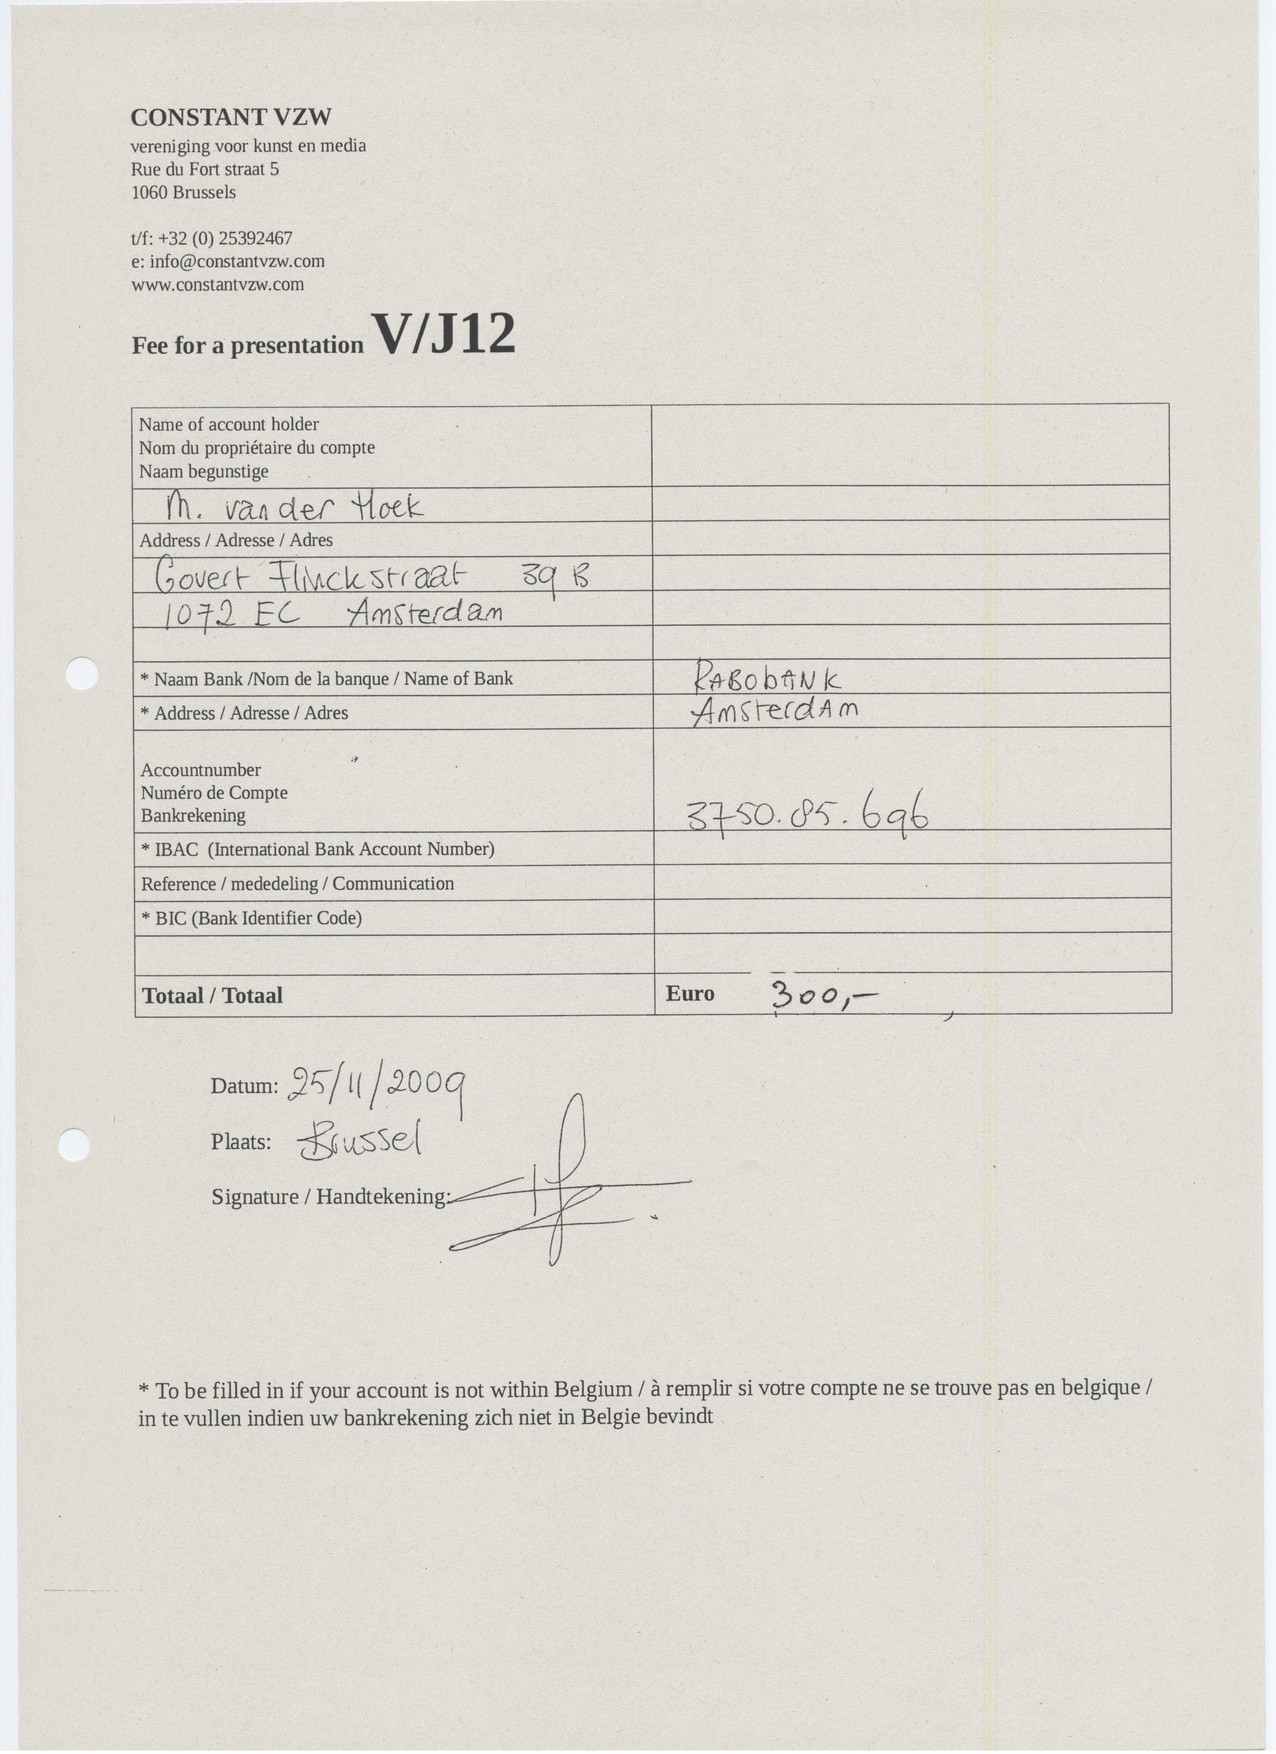 CONSTANT VZW
vereniging voor kunst en media
Rue du Fort straat 5
1060 Brussels
t/f: +32 (0) 25392467
e: info@constantvzw.com
www.constantvzw.com
Fee for a presentation V/J12
Name of account holder
Nom du propriétaire du compte
Naam begunstige
M. van der Hoek
Address / Adresse / Adres
Govert Flinckstraat 39 B
1072 EC Amsterdam
* Naam Bank /Nom de la banque / Name of Bank RABObANK
* Address / Adresse / Adres AmsterdAm
Accountnumber
Numéro de Compte
Bankrekening 3750.85.696
* IBAC (International Bank Account Number)
Reference / mededeling / Communication
* BIC (Bank Identifier Code)
Totaal / Totaal Euro 300,-
Datum: 25/11/2009
Plaats: Brussel
Signature / Handtekening:
* To be filled in if your account is not within Belgium / à remplir si votre compte ne se trouve pas en belgique /
in te vullen indien uw bankrekening zich niet in Belgie bevindt